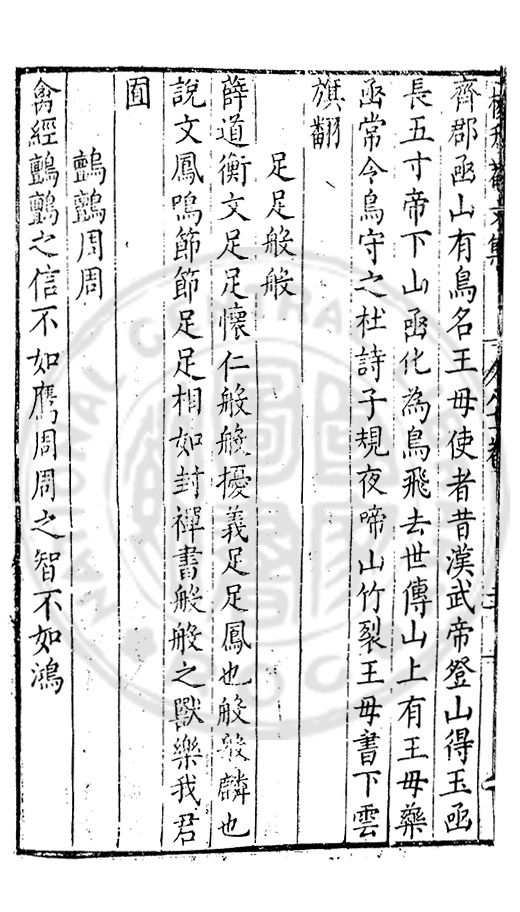 齊郡函山有鳥名王母使者昔漢武帝登山得玉函
長五寸帝下山函化為鳥飛去世傳山上有王母藥
函常令鳥守之杜詩子規夜啼山竹裂王母晝下雲
旗翻
足足般般
薛道衡文足足懷仁般般擾義足足鳳也般般麟也
說文鳳鳴節節足足相如封禪書般般之獸樂我君
囿
鸓鸓周周
禽經鸓鸓之信不如鴈周周之智不如鴻